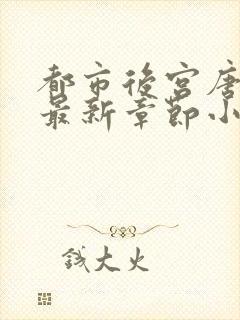 都市后宫唐
最新章节小
钱大火